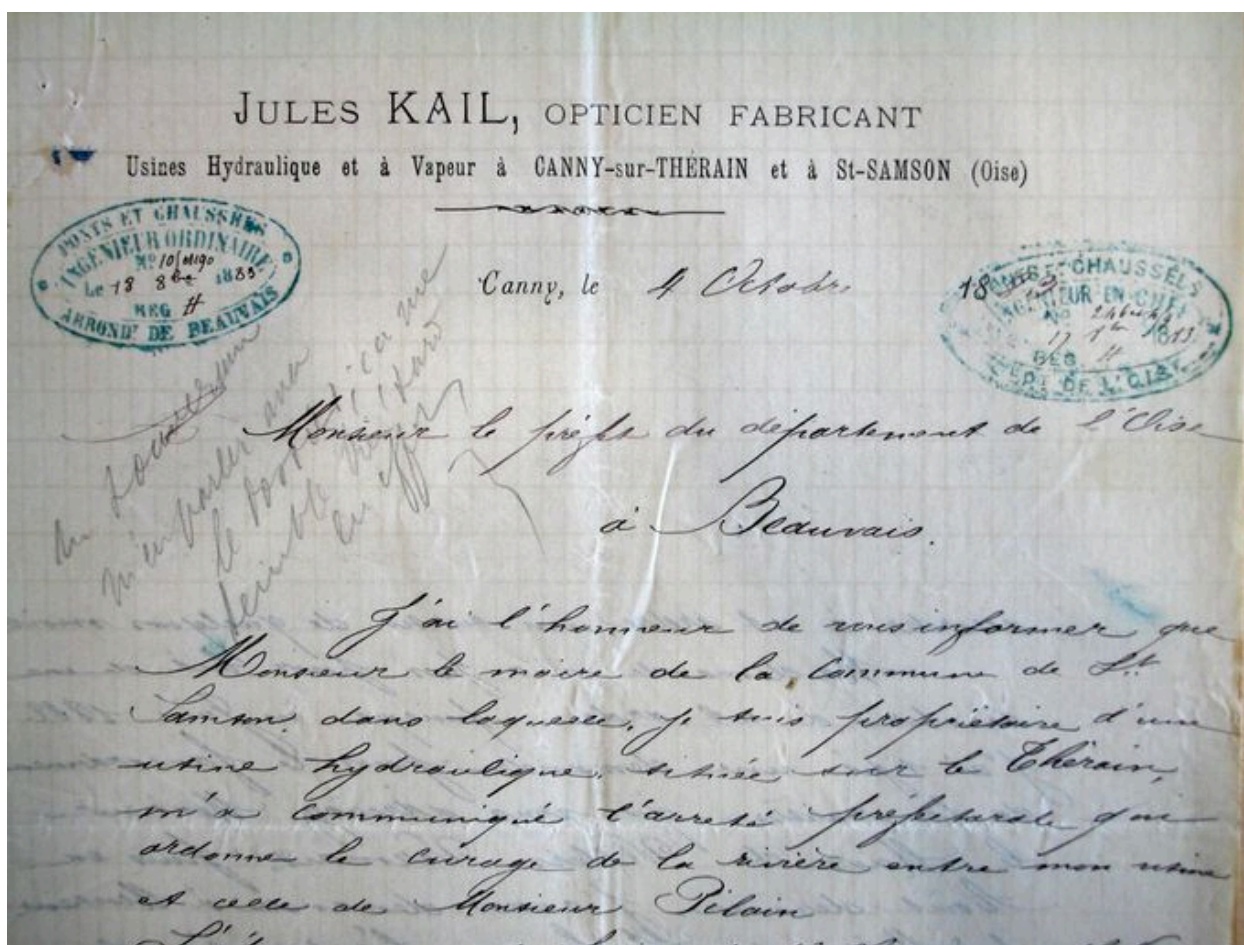 JULES KAIL, OPTICIEN FABRICANT
Usines Hydraulique et à Vapeur à CANNY-sur-THÉRAIN et à St-SAMSON (Oise)
PONTS ET CHAUSSÉES
INGÉNIEUR ORDINAIRE
No
Le 18 8bre 1883
REG H
ARRONDT DE BEAUVAIS
Canny, le 4 Octobre
18
PONTS & CHAUSSÉES
INGÉNIEUR EN CHEF
No
17
REG H
DEPT DE L'OISE
m'en parler
le
semble
en effet
Monsieur le préfet du département de l'Oise
à Beauvais.
J'ai l'honneur de vous informer que
Monsieur le maire de la commune de St
Samson, dans laquelle, je suis propriétaire d'une
usine hydraulique, située sur le Thérain,
m'a communiqué l'arreté préfectorale qui
ordonne le curage de la rivière entre mon usine
et celle de Monsieur Pilain